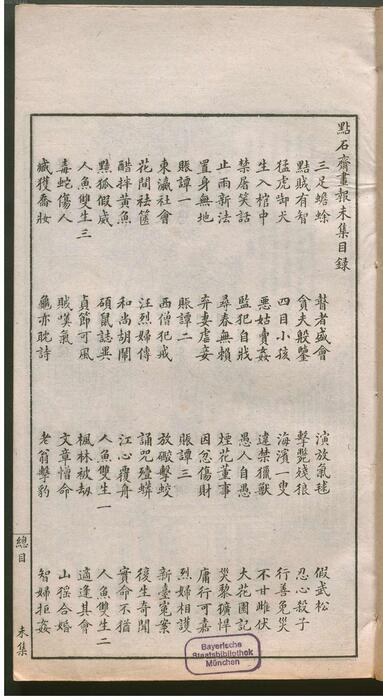 點石齋畫報未集目錄
三足蟾蜍 瞽者盛會 演放氣毬 假武松
黠賊有智 貪夫殷鑒 擊斃殘狼 忍心殺子
猛虎啣犬 四目小孩 海濱一叟 行善免災
生入棺中 惡姑賣姦 違禁獵獸 不甘雌伏
禁屠笑話 監犯自戕 愚人自愚 大花園記
止雨新法 尋春無賴 煙花董事 災黎獷悍
置身無地 弃妻虐妾 因忿傷財 庸行可嘉
賬譚一 賬譚二 賬譚三 烈婦相護
東瀛社會 西僧犯戒 放礮擊蛟 新臺冤案
花間祛篋 汪烈婦傳 誦咒殪蟒 復生奇聞
醋拌黃魚 和尚胡鬧 江心覆舟 實命不猶
黠狐假威 碩鼠誌異 人魚雙生一 人魚雙生二
人魚雙生三 貞節可風 楓林被劫 適逢其會
毒蛇傷人 賊嘆氣 文章憎命 山猺合婚
臧獲喬妝 龜亦耽詩 老翁擊豹 智婦拒姦
總目 未集
Bayerische
Staatsbibliothek
München